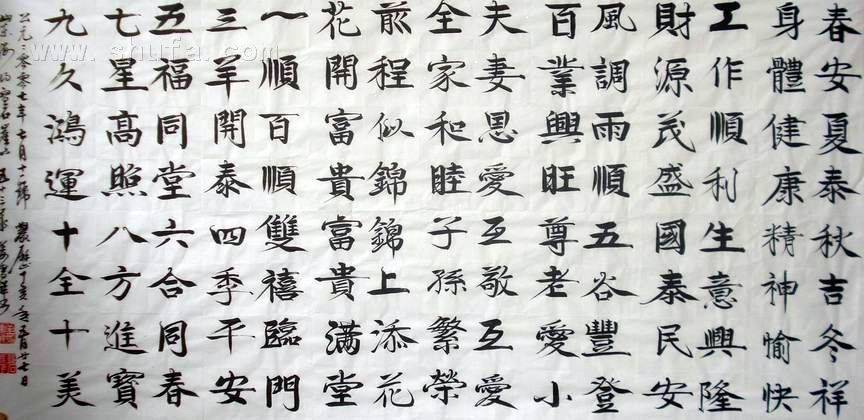 春安夏泰秋吉冬祥
身體健康精神愉快
工作順利生意興隆
財源茂盛國泰民安
風調雨順五谷豐登
百業興旺尊老愛小
夫妻恩愛互敬互愛
全家和睦子孫繁榮
前程似錦錦上添花
花開富貴富貴滿堂
一順百順雙禧臨門
三羊開泰四季平安
五福同堂六合同春
七星高照八方進寶
九久鴻運十全十美
公元二零零七年七月十一號 農歷丁亥年五月廿七日
五十三歲
www.shufa.com